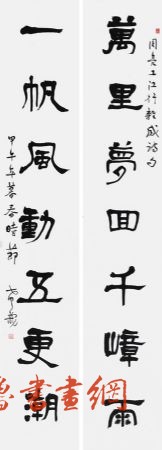 萬里夢回千嶂雨
一帆風動五更潮
周亮工江行輒感詩句
甲午年暮春時節
書畫網